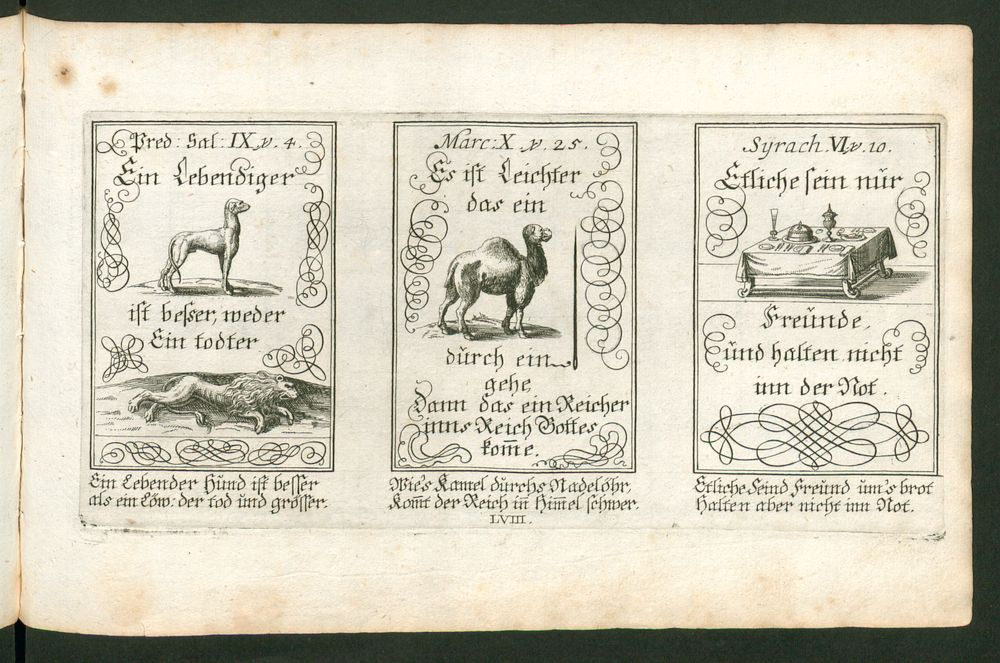 Pred: Sal: IX, v. 4.
Ein Lebendiger
ist besser, weder
Ein todter
Ein Lebender Hund ist besser
als ein Löw: der tod und grösser.
Marc: X. v. 25.
Es ist Leichter
das ein
dürch ein
gehe,
Dann das ein Reicher
inns Reich Gottes
kom̄e.
Wie's Kamel dürchs Nadelöhr,
Kom̄t der Reich in Him̄el schwer.
LVIII.
Syrach. VI, v. 10.
Etliche sein nür
Freünde,
ünd halten nicht
inn der Not.
Etliche Seind Freünd üm's brot
Halten aber nicht inn Not.